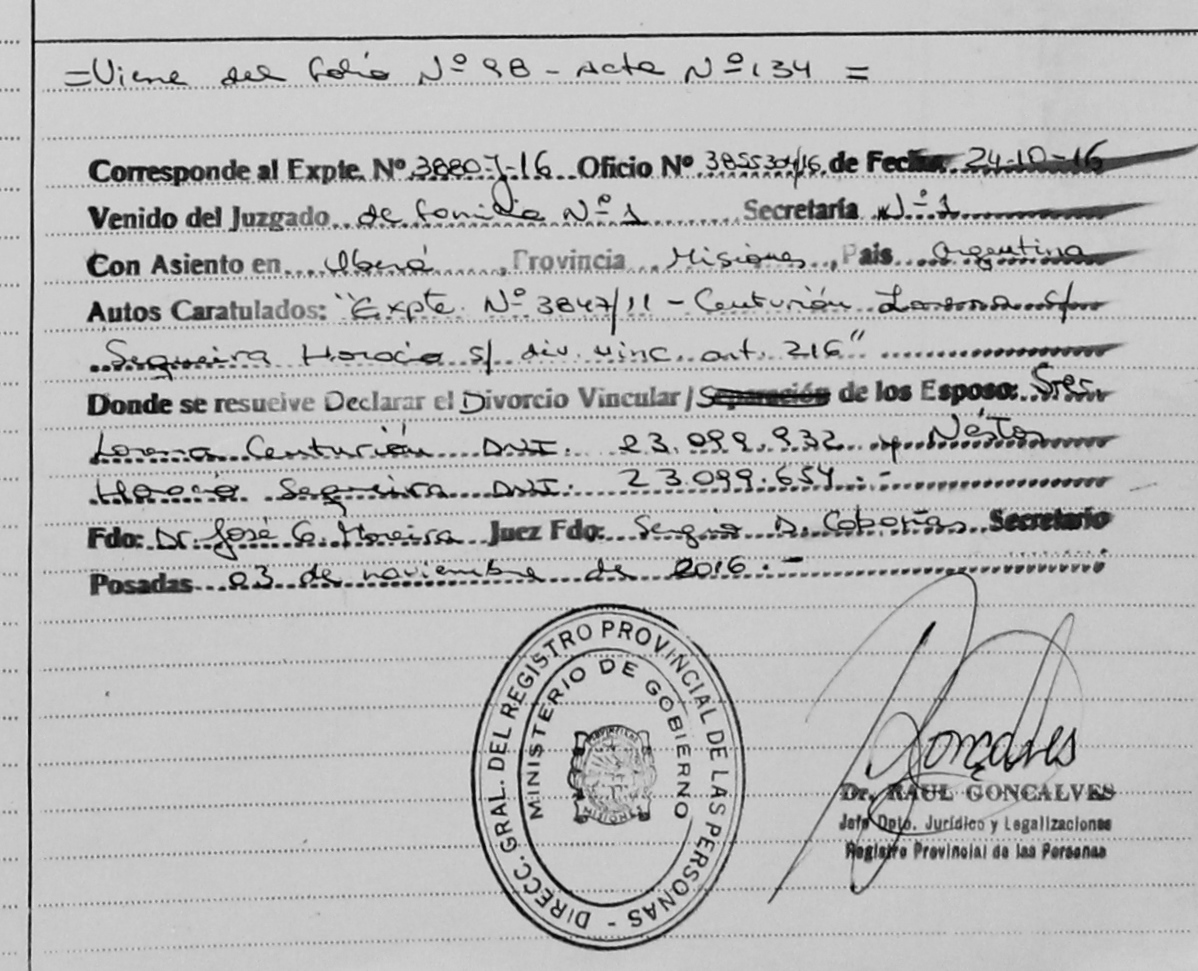 =Viene del folio Nº 98 - Acta Nº 134 =
Corresponde al Expte. Nº 38807-16 Oficio Nº 385530/16 de Fecha: 24-10-16
Venido del Juzgado de familia Nº 1 Secretaría Nº 1
Con Asiento en Oberá, Provincia Misiones, Pais Argentina
Autos Caratulados: "Expte. Nº 3847/11 - Centurión Lorena c/
Sequeira Horacio s/ div. vinc. art. 216"
Donde se resuelve Declarar el Divorcio Vincular / Separación de los Esposo: Sres.
Lorena Centurión DNI. 23.099.932 y Néstor
Horacio Sequeira DNI. 23.099.654.-
Fdo: Dr. José G. Moreira Juez Fdo: Sergio D. Secretario
Posadas 23 de noviembre de 2016.-
DIRECC. GRAL. DEL REGISTRO PROVINCIAL DE LAS PERSONAS -
MINISTERIO DE GOBIERNO
MISIONES
Goncalves
Dr. RAUL GONCALVES
Jefe Dpto. Jurídico y Legalizaciones
Registro Provincial de las Personas